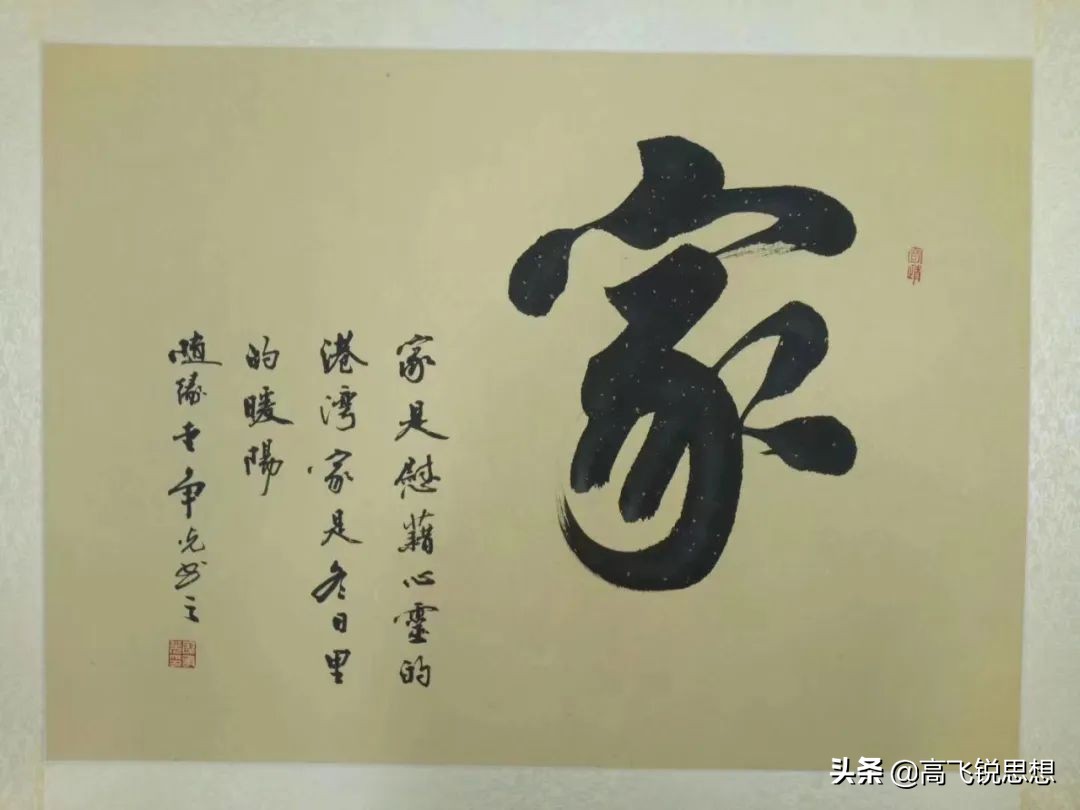 家
家是慰藉心靈的
港湾家是冬日里
的暖陽
随缘堂争光书之
头条 @高飞锐思想